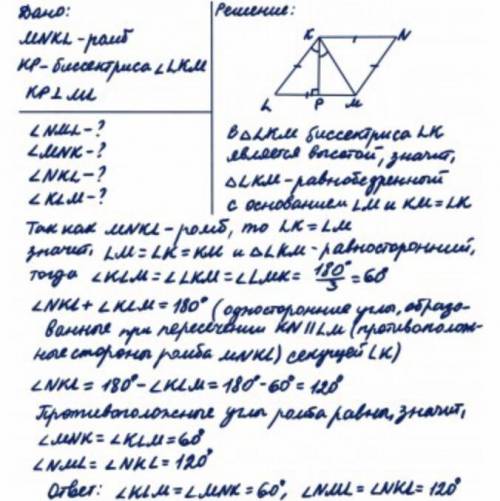 Дано:
MNKL - ромб
KP - биссектриса ∠LKM
KP⊥ML
∠NML - ?
∠MNK - ?
∠NKL - ?
∠KLM - ?
Решение:
K N
L P M
В △LKM биссектриса LK
является высотой, значит,
△LKM - равнобедренный
с основанием LM и KM = LK
Так как MNKL - ромб, то LK = LM
значит, LM = LK = KM и △LKM - равносторонний,
тогда ∠KLM = ∠LKM = ∠LMK = 180°/3 = 60°
∠NKL + ∠KLM = 180° (односторонние углы, образо-
ванные при пересечении KN || LM (противополож-
ные стороны ромба MNKL) секущей LK)
∠NKL = 180° - ∠KLM = 180° - 60° = 120°
Противоположные углы ромба равны, значит,
∠MNK = ∠KLM = 60°
∠NML = ∠NKL = 120°
Ответ: ∠KLM = ∠MNK = 60°, ∠NML = ∠NKL = 120°